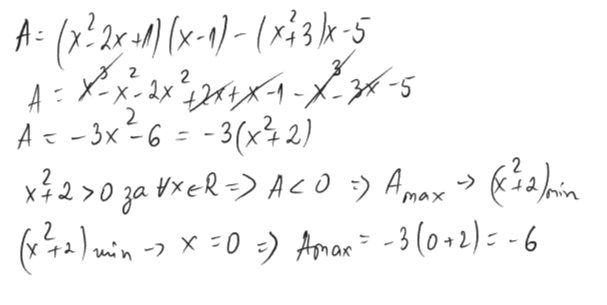 A = (x² - 2x + 1)(x - 1) - (x² + 3)x - 5
A = x³ - x² - 2x² + 2x + x - 1 - x³ - 3x - 5
A = -3x² - 6 = -3(x² + 2)
x² + 2 > 0 за ∀x∈R => A < 0 => A max → (x² + 2) min
(x² + 2) min → x = 0 => A max = -3(0 + 2) = -6